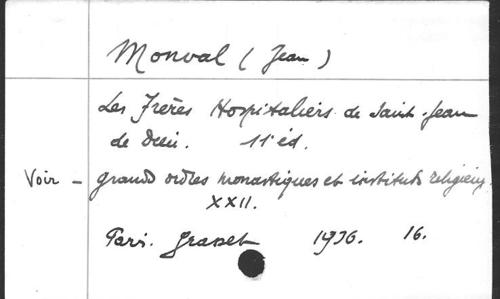 Monval (Jean)
Les Frères Hospitaliers de Saint-Jean
de Dieu. 11e éd.
Voir - grands ordres monastiques et instituts religieux
XXII.
Paris. Grasset 1936. 16.